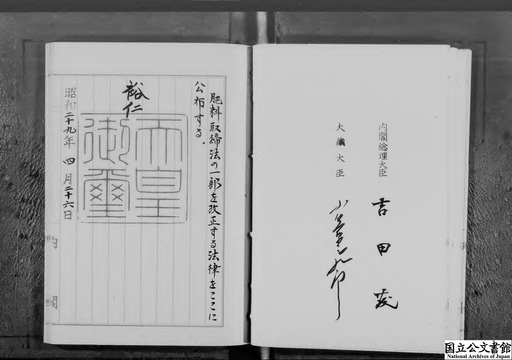 内閣総理大臣
吉田茂
大藏大臣
小笠原三九郎
肥料取締法の一部を改正する法律をここに
公布する。
裕仁
天皇
御璽
昭和二十九年四月二十六日
内閣
国立公文書館
National Archives of Japan